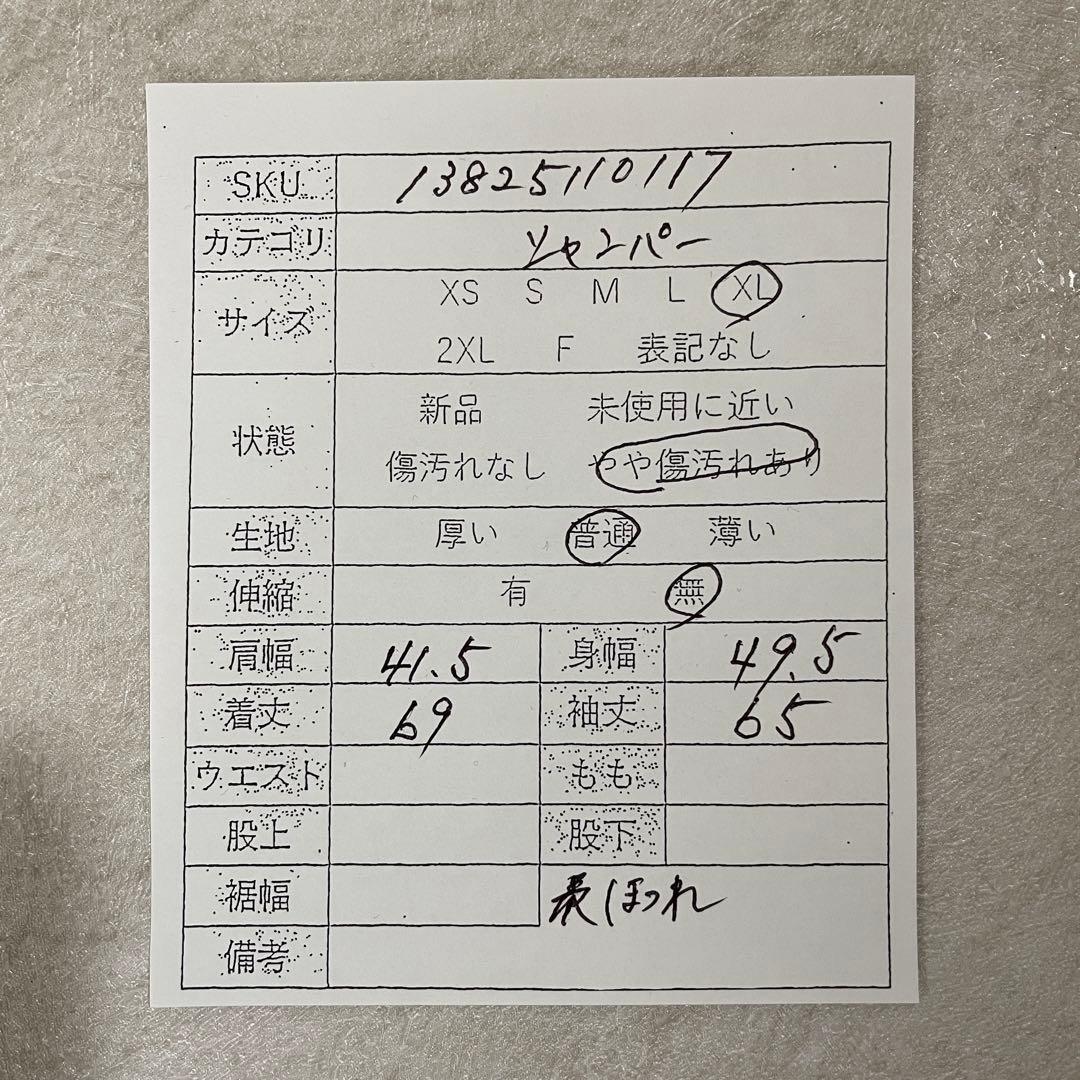 SKU 13825110117
カテゴリ ジャンパー
サイズ XS S M L XL
2XL F 表記なし
状態 新品 未使用に近い
傷汚れなし やや傷汚れあり
生地 厚い 普通 薄い
伸縮 有 無
肩幅 41.5 身幅 49.5
着丈 69 袖丈 65
ウエスト もも
股上 股下
裾幅 表ほつれ
備考